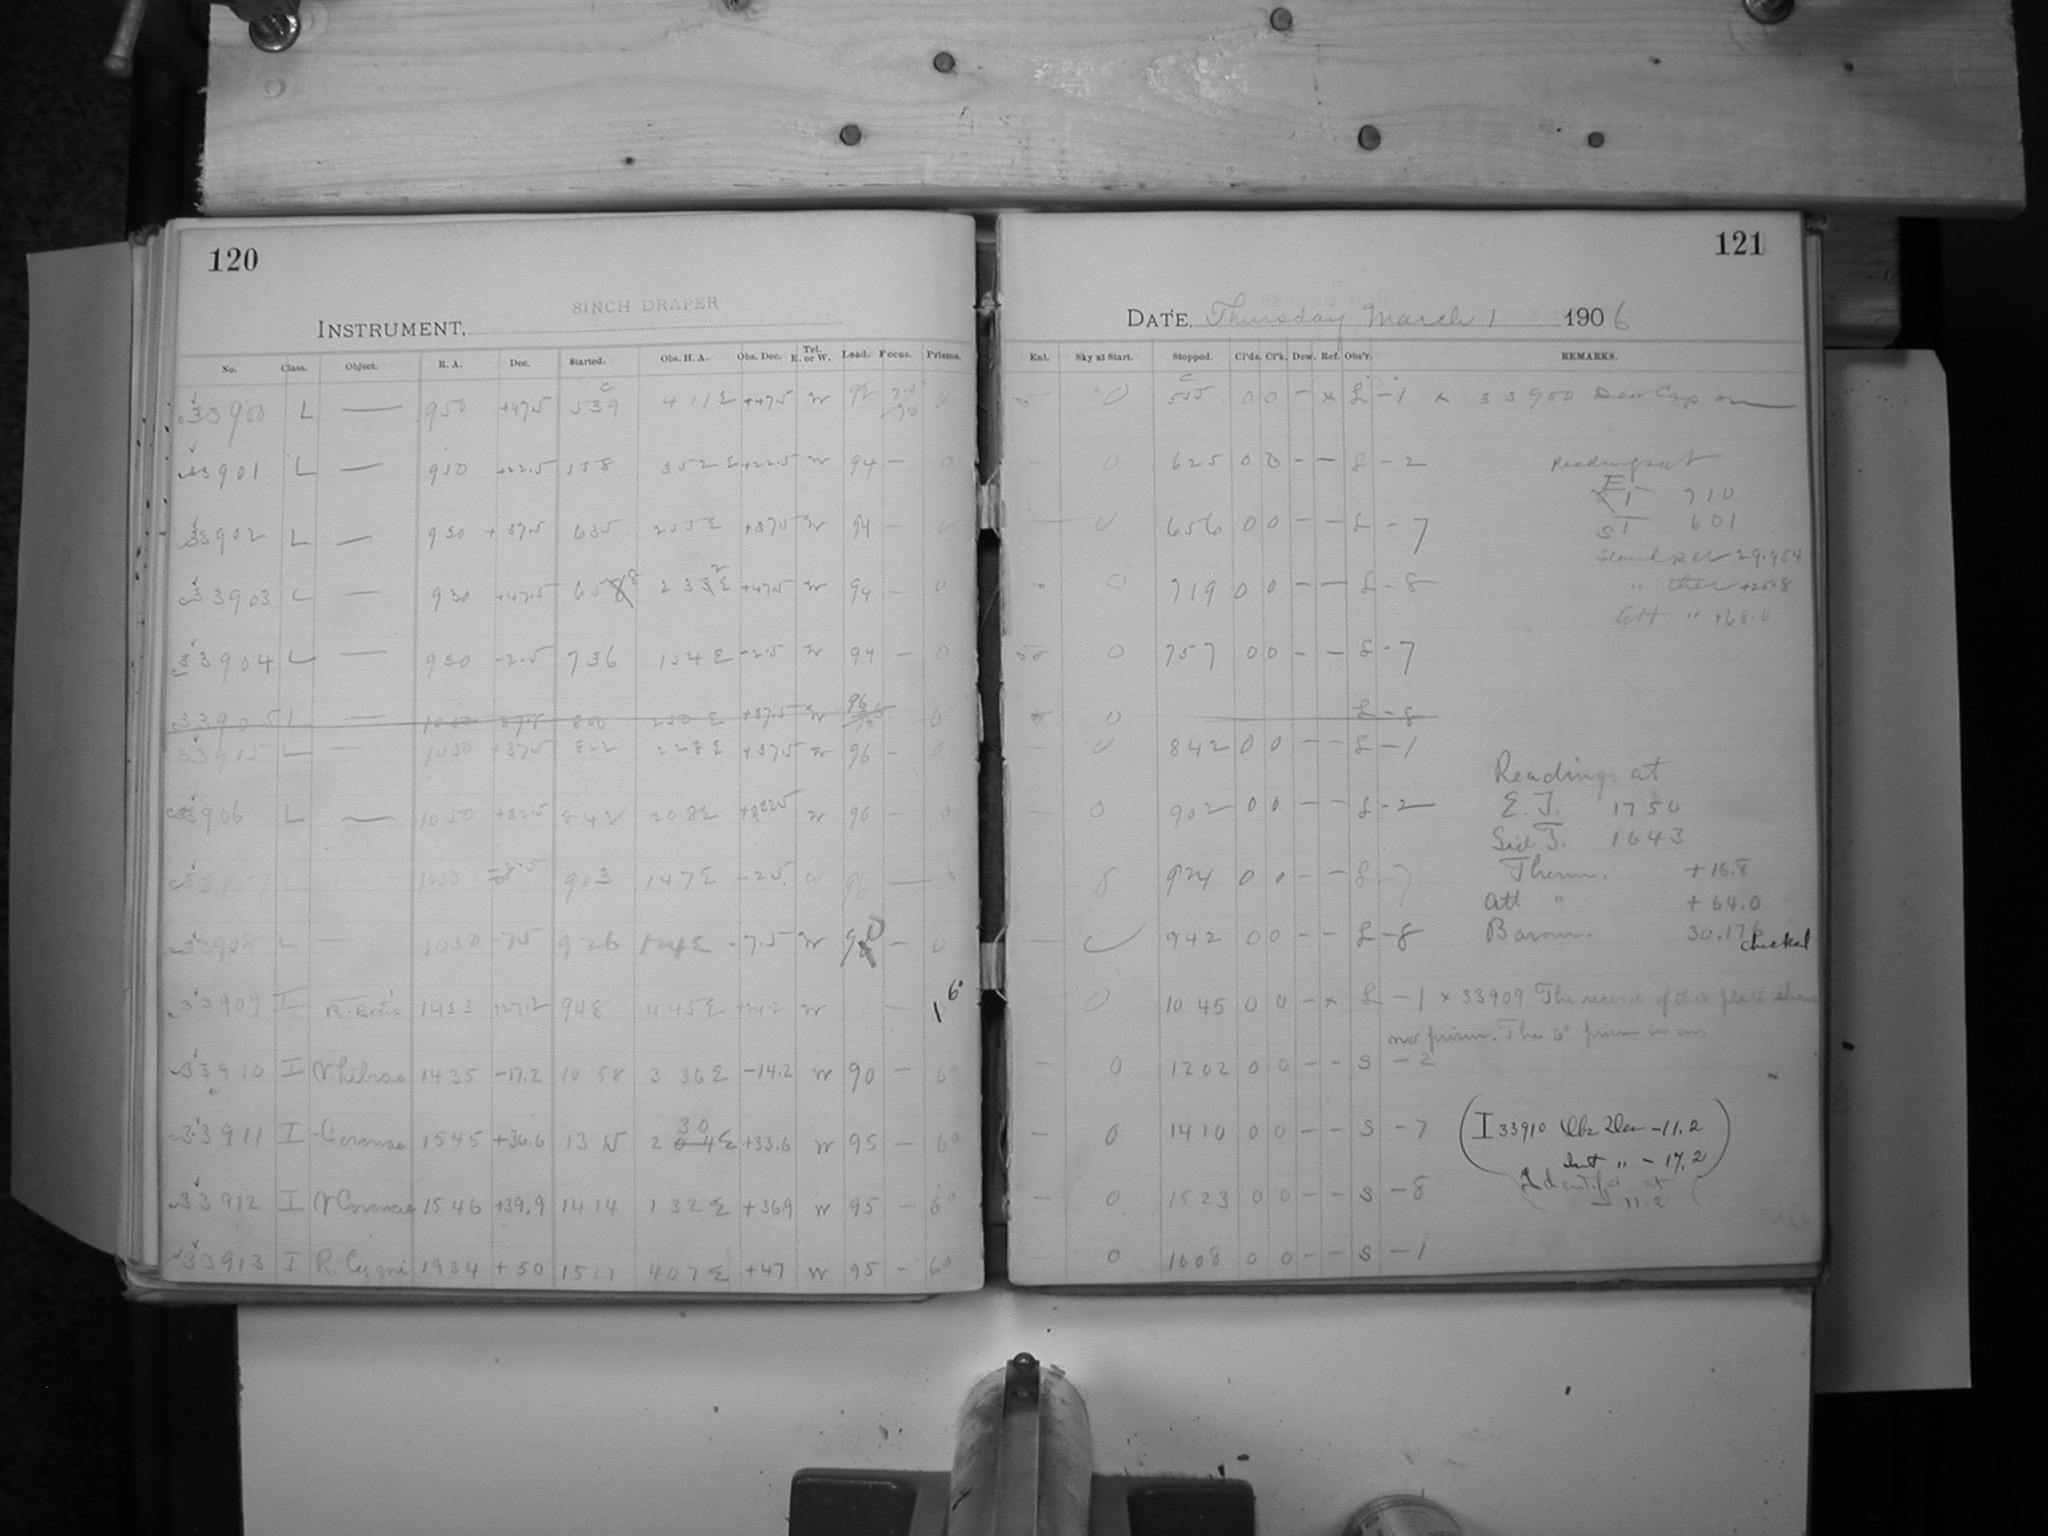 120
8INCH DRAPER
INSTRUMENT,
No. Class. Object. R. A. Dec. Started. Obs. H. A. Obs. Dec. Tel. E. or W. Lead. Focus. Prisms.
33900 L — 950 +47.5 539 411E +47.5 W 0
33901 L — 950 +22.5 558 352E +22.5 W 94 — 0
33902 L — 930 +37.5 635 255E +37.5 W 94 — 0
33903 L — 930 +47.5 658 232E +47.5 W 94 — 0
33904 L — 930 -2.5 736 154E -2.5 W 94 — 0
33905 L — 800 250 E +37.5 W 96 0
33905 L — 1030 +37.5 822 228E +37.5 W 96 — 0
33906 L — 1050 +32.5 842 208E +32.5 W 96 — 0
1030 903 147E -2.5 W 96 —
33908 L — 1030 -7.5 926 E -7.5 W 90 — 0
33909 I R. Bootis 1433 +27.2 948 445E +24.2 W — 6°
33910 I V Librae 1435 -17.2 1058 336E -14.2 W 90 — 6°
33911 I Coronae 1545 +36.6 13 2 30 E +33.6 W 95 — 6°
33912 I V Coronae 1546 +39.9 1414 132E +369 W 95 — 6°
33913 I R. Cygni 1934 +50 1527 407E +47 W 95 — 6°
121
DATE, Thursday March 1 1906
Enl. Sky at Start. Stopped. Cl'ds. Cl'k. Dew. Ref. Obs'r. REMARKS.
0 555 0 0 — x L -1 x 33900 Dew Cap on
— 0 625 0 0 — — L -2 Readings at
ET 710
— 0 656 0 0 — — L -7 ST 601
29.954
0 719 0 0 — — L -8 " ther +20.8
Att " +68.0
0 757 0 0 — — L -7
0 L -8
— 0 842 0 0 — — L -1
Readings at
— 0 902 0 0 — — L -2 E. T. 1750
Sid T. 1643
924 0 0 — — L -7 Therm. +16.8
Att " +64.0
942 0 0 — — L -8 Barom. 30.176
checked
0 1045 0 0 — x L -1 x 33909 The record of this plate shows
no prism. The 6° prism is on.
— 0 1202 0 0 — — S -2
— 0 1410 0 0 — — S -7 (I 33910 Obs Dec -11.2
" -17.2)
— 0 1523 0 0 — — S -8 Identified at
-11.2
— 0 1608 0 0 — — S -1